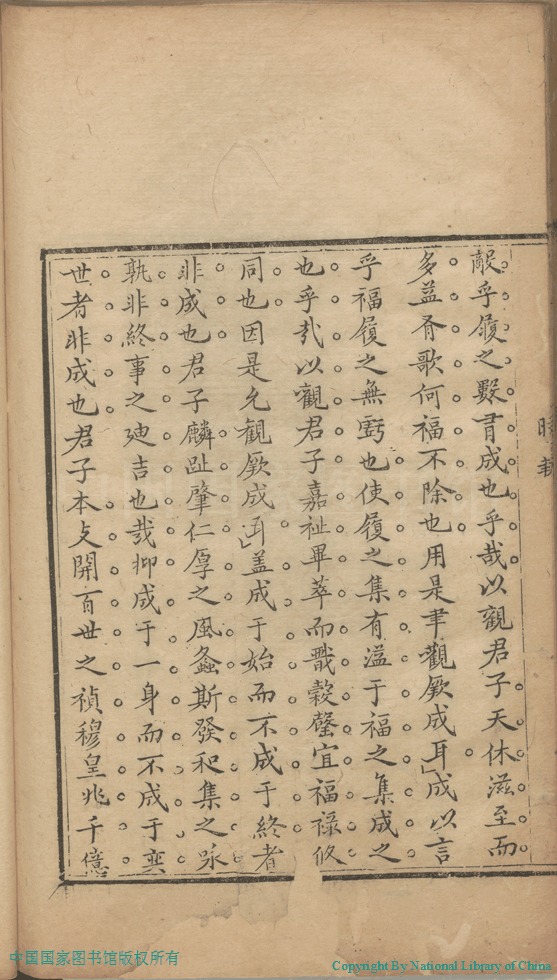 乎履之數胥成也乎哉以觀君子天休滋至而
多益胥歌何福不除也用是聿觀厥成耳成以言
乎福履之無虧也使履之集有溢于福之集成之
也乎哉以觀君子嘉祉畢萃而戩穀罄宜福祿攸
同也因是允觀厥成耳盖成于始而不成于終者
非成也君子麟趾肇仁厚之風螽斯發和集之咏
孰非終事之廸吉也哉抑成于一身而不成于奕
世者非成也君子本支開百世之禎穆皇兆千億
中国国家图书馆版权所有
Copyright By National Library of China